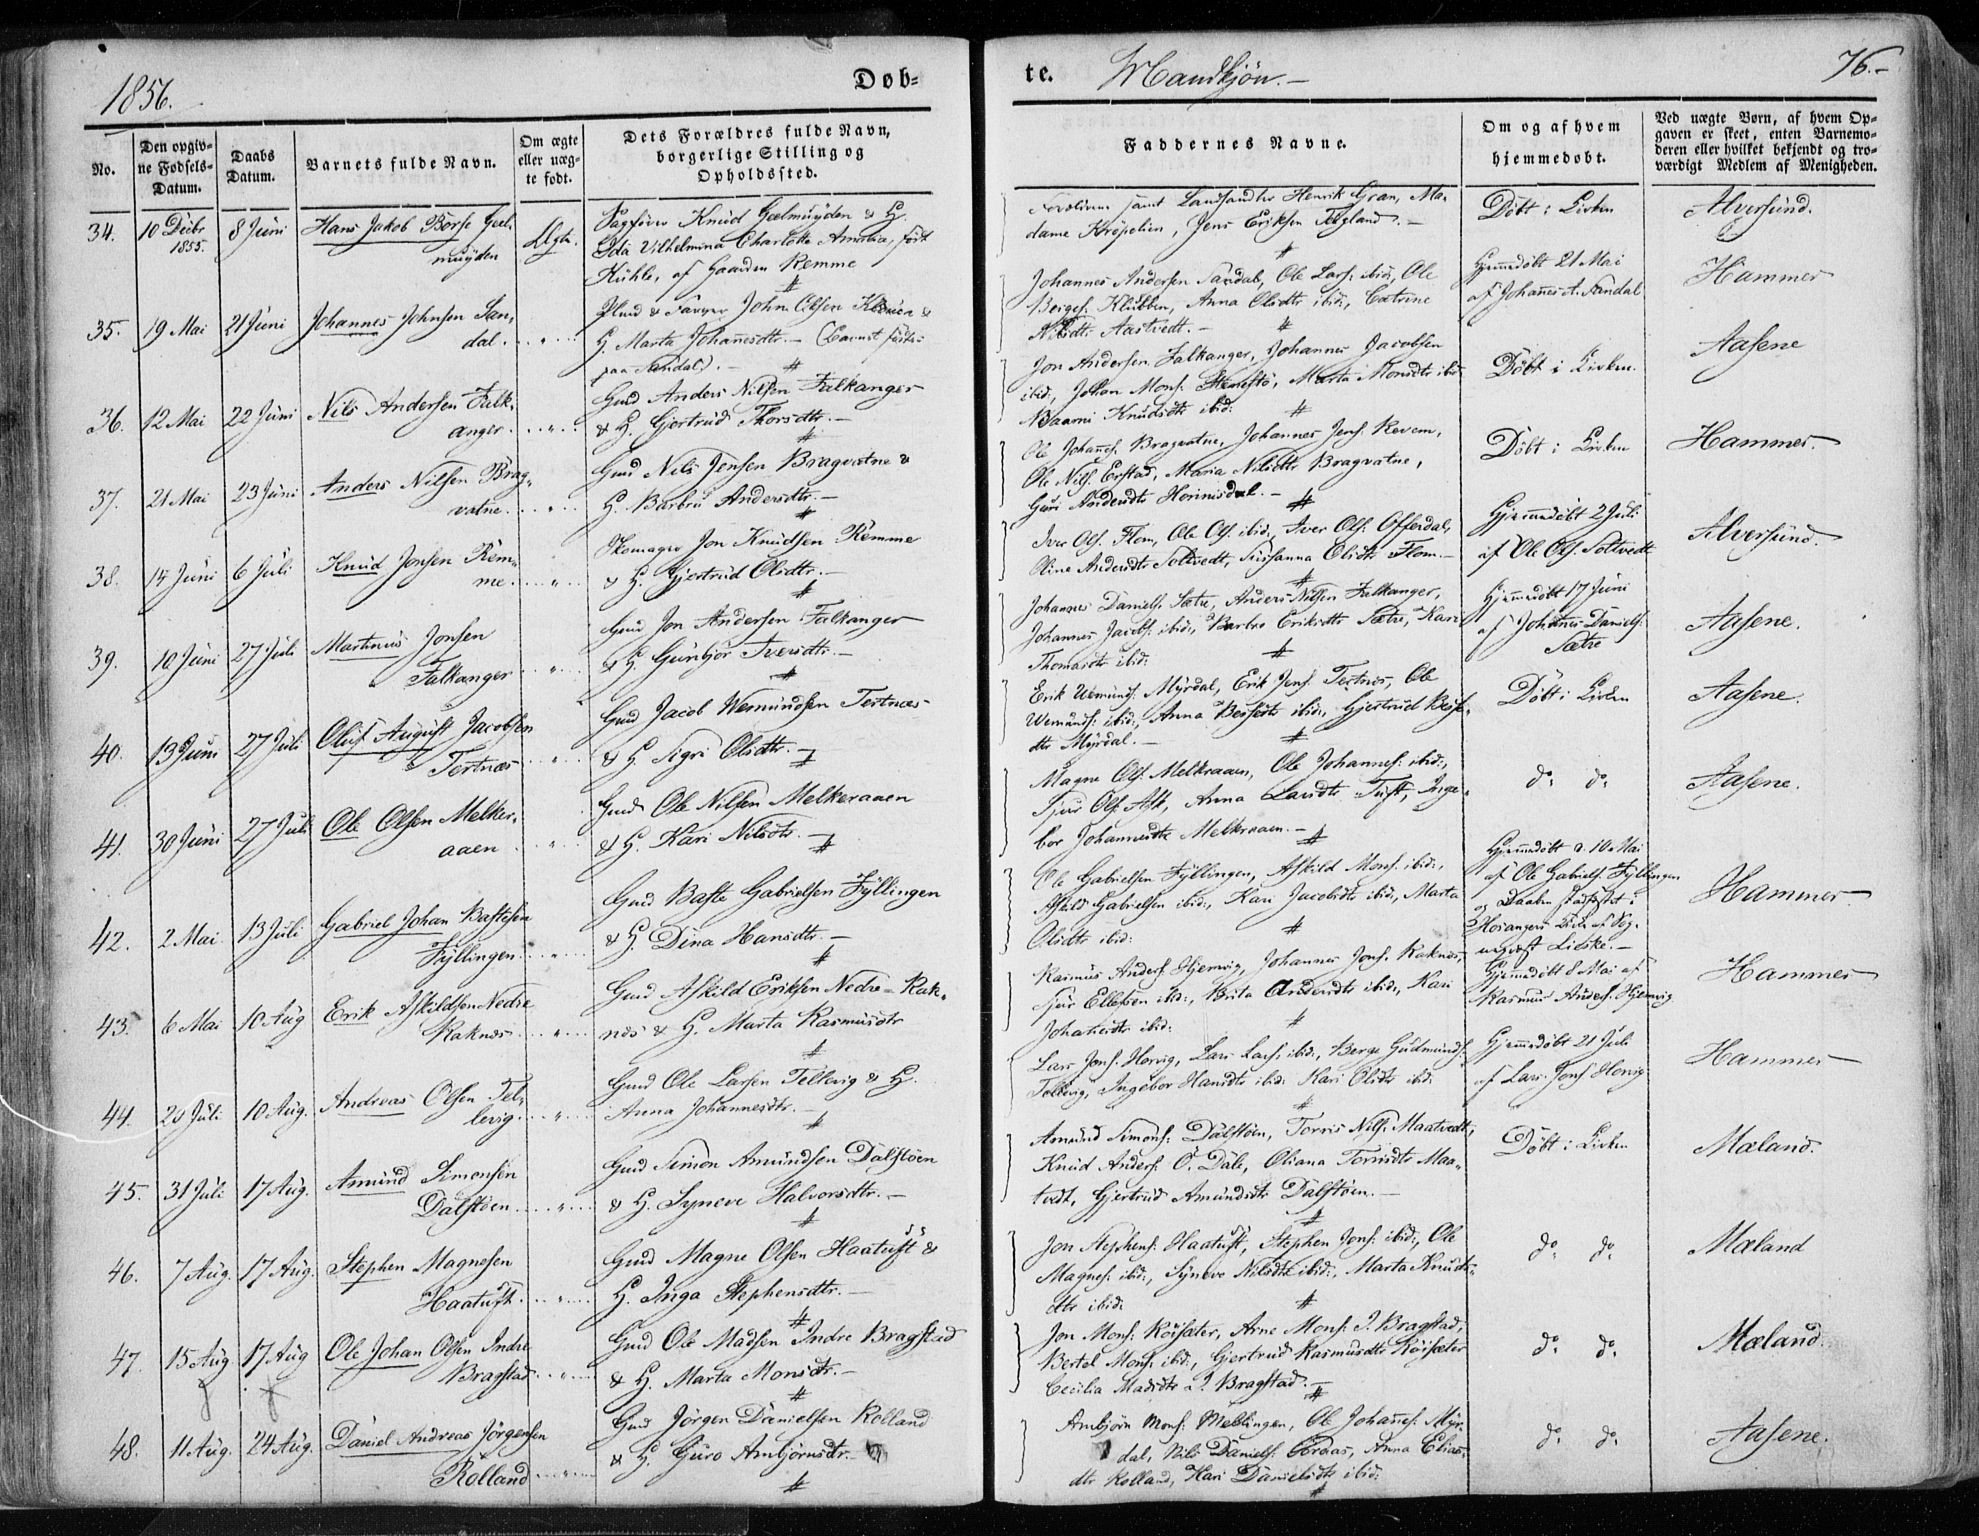 1856.
Døb=
te. Mandkjøn.-
76.-
No.
Den opgiv=
ne Fødsels=
Datum.
Daabs
Datum.
Barnets fulde Navn.
Om ægte
eller uæg=
te født.
Dets Forældres fulde Navn,
borgerlige Stilling og
Opholdssted.
Faddernes Navne.
Om og af hvem
hjemmedøbt.
Ved uægte Børn, af hvem Op=
gaven er skeet, enten Barnemo=
deren eller hvilket bekjendt og tro=
værdigt Medlem af Menigheden.
34. 10 Decbr 8 Juni Hans Jakob Børse Geel-
1855. muyden Ægte.
Sagfører Knud Geelmuyden & H.
Ida Vilhelmina Charlotte Amalia, født
Kuhle, af Gaarden Remme
Forældrene samt Landhandler Henrik Gran, Ma-
dame Krøpelien, Jens Eriksen Tegeland.-
Døbt i Kirken
Alversund.
35. 19 Mai 21 Juni Johannes Johnsen San-
dal. "
Hmd & Farver John Olsen &
H. Marta Johannesdtr.- (Barnet født
paa Sandal).-
Johannes Andersen Sandal, Ole Lars. ibid:, Ole
Børges. Klubben, Anna Olsdtr ibid:, Catrine
Nilsdtr Aastvedt.-
Hjemmedøbt 21 Mai
af Johannes A. Sandal
Hammer
36. 12 Mai 22 Juni Nils Andersen Falk-
anger. "
Gmd Anders Nilsen Falkanger
& H. Gjertrud Thorsdtr.-
Jon Andersen Falkanger, Johannes Jacobsen
ibid:, Johan Mons. Stenestø, Marta Monsdtr ibid:
Baarni Knudsdtr ibid:
Døbt i Kirken.
Aasene
37. 21 Mai 23 Juni Anders Nilsen Brag-
vatne. "
Gmd Nils Jensen Bragvatne &
H. Barbru Andersdtr.-
Ole Johans. Bragvatne, Johannes Jens. Revem,
Ole Nils. Erstad, Maria Nilsdtr Bragvatne,
Guri Andersdtr Herinisdal.-
Døbt i Kirken
Hammer.
38. 14 Juni 6 Juli Knud Jonsen Rem-
me. "
Skomager Jon Knudsen Remme
& H. Gjertrud Olsdtr.-
Iver Ols. Flom, Ole Ols. ibid:, Iver Ols. Offerdal,
Oline Andersdtr Soltvedt, Susanna Olsdtr Flom.-
Hjemmedøbt 2 Juli
af Ole Ols. Soltvedt
Alversund.
39. 10 Juni 27 Juli Martinus Jonsen
Falkanger "
Gmd Jon Andersen Falkanger
& H. Gunbjør Iversdtr.-
Johannes Daniels. Sætre, Anders Nilsen Falkanger,
Johannes Jacobs. ibid:, Barbro Eriksdtr Sætre, Kari
Thomasdtr ibid:
Hjemmedøbt 17 Juni
af Johannes Daniels.
Sætre
Aasene.
40. 13 Juni 27 Juli Oluf August Jacobsen
Tertnæs "
Gmd Jacob Wemundsen Tertnæs
& H. Sigri Olsdtr.-
Erik Wemunds. Myrdal, Erik Jens. Tertnes, Ole
Wemunds. ibid:, Anna Bessesdtr ibid:, Gjertrud Besse-
dtr Myrdal.-
Døbt i Kirken
Aasene.
41. 30 Juni 27 Juli Ole Olsen Melker-
aaen "
Gmd Ole Nilsen Melkeraaen
& H. Kari Nilsdtr.-
Magne Ols. Melkraaen, Ole Johannes. ibid:,
Sjur Ols. Ask, Anna Larsdtr Tuft, Inge-
bor Johannesdtr Melkraaen.-
do. do.
Aasene.
42. 2 Mai 13 Juli Gabriel Johan Bastesen
Fyllingen. "
Gmd Baste Gabrielsen Fyllingen
& H. Dina Hansdtr.-
Ole Gabrielsen Fyllingen, Askild Mons. ibid:,
Askild Gabrielsen ibid:, Kari Jacobsdtr ibid:, Marta
Olsdtr ibid:
Hjemmedøbt d. 10 Mai
af Ole Gabriels. Fyllingen
og Daaben stadfæstet i
Hosangers Kirke af Sog-
nepræst Lidske.-
Hammer.
43. 6 Mai 10 Aug Erik Askildsen Nedre
Raknes. "
Gmd Askild Eriksen Nedre-Rak-
nes & H. Marta Rasmusdtr
Rasmus Anders. Hjemvig, Johannes Jons. Raknes,
Sjur Ellefsen ibid:, Brita Andersdtr ibid:, Kari
Johannesdtr ibid:
Hjemmedøbt 8 Mai af
Rasmus Anders. Hjemvig
Hammer
44. 20 Juli 10 Aug. Andreas Olsen Tel-
levig. "
Gmd Ole Larsen Tellevig & H.
Anna Johannesdtr.-
Lars Jons. Horvig, Lars Lars. ibid:, Berge Gudmunds.
Tellevig, Ingebor Hansdtr ibid: Kari Olsdtr ibid:
Hjemmedøbt 21 Juli
af Lars Jons. Horvig
Hammer
45. 31 Juli 17 Aug. Amund Simonsen
Dalstøen. "
Gmd Simon Amundsen Dalstøen
& H. Syneve Halvorsdtr.-
Amund Simons. Dalstøen, Torris Nils. Maatvedt,
Knud Anders. Ö. Dale, Oliana Torrisdtr Maa-
tvedt, Gjertrud Amundsdtr Dalstøen.-
Døbt i Kirken
Mæland.
46. 7 Aug. 17 Aug. Stephen Magnesen
Haatuft. "
Gmd Magne Olsen Haatuft &
H. Inga Stephensdtr.-
Jon Stephens. Haatuft, Stephen Jons. ibid:, Ole
Magnes. ibid:, Syneve Nilsdtr ibid:, Marta Knuds-
dtr ibid:
do. do.
Mæland
47. 15 Aug 17 Aug Ole Johan Olsen Indre
Bragstad "
Gmd Ole Madsen Indre Bragstad
& H. Marta Monsdtr.-
Jon Mons. Röisæter, Arne Mons. I. Bragstad,
Bertel Mons. ibid:, Gjertrud Rasmusdtr Röisæter
Cecilia Madsdtr I. Bragstad.-
do. do.
Mæland.
48. 11 Aug. 24 Aug. Daniel Andreas Jørgensen
Rolland "
Gmd Jørgen Danielsen Rolland
& H. Guro Ambjørnsdtr.-
Ambjørn Mons. Mellingen, Ole Johannes. Myr-
dal, Nils Daniels. , Anna Elias-
dtr Rolland, Kari Danielsdtr ibid:
do. do.
Aasene.